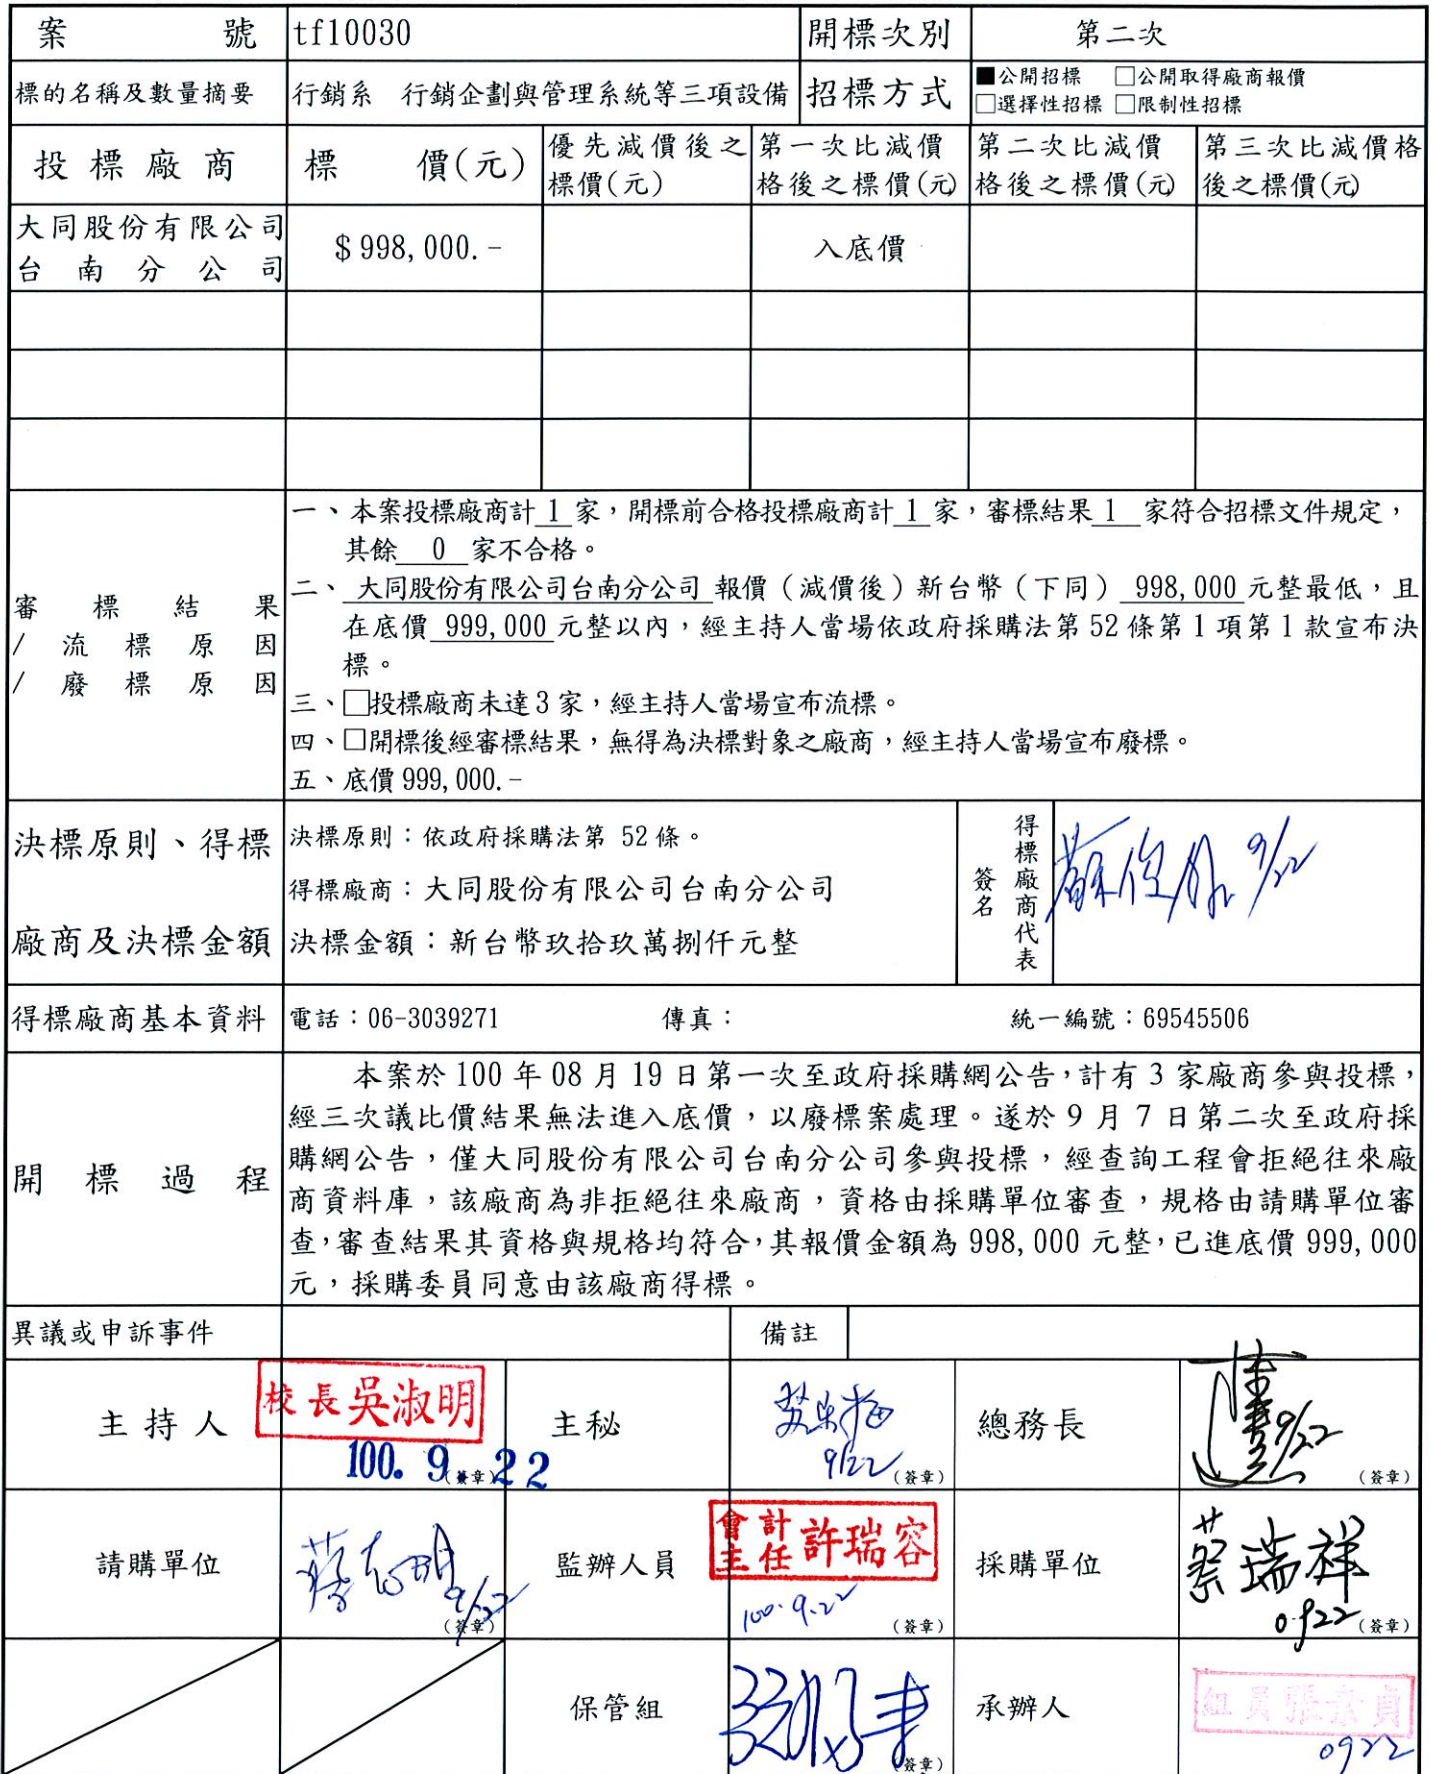 案　　號　tf10030　開標次別　第二次
標的名稱及數量摘要　行銷系　行銷企劃與管理系統等三項設備　招標方式　■公開招標　□公開取得廠商報價
□選擇性招標　□限制性招標
投標廠商　標　價(元)　優先減價後之　第一次比減價　第二次比減價　第三次比減價格
標價(元)　格後之標價(元)　格後之標價(元)　後之標價(元)
大同股份有限公司
台南分公司　$998,000.-　入底價
一、本案投標廠商計 1 家，開標前合格投標廠商計 1 家，審標結果 1 家符合招標文件規定，
其餘 0 家不合格。
審標結果
/流標原因
/廢標原因
二、大同股份有限公司台南分公司 報價（減價後）新台幣（下同） 998,000 元整最低，且
在底價 999,000 元整以內，經主持人當場依政府採購法第 52 條第 1 項第 1 款宣布決
標。
三、□投標廠商未達 3 家，經主持人當場宣布流標。
四、□開標後經審標結果，無得為決標對象之廠商，經主持人當場宣布廢標。
五、底價 999,000.-
決標原則、得標
廠商及決標金額
決標原則：依政府採購法第 52 條。
得標廠商：大同股份有限公司台南分公司
決標金額：新台幣玖拾玖萬捌仟元整
得標廠商代表
簽名
9/22
得標廠商基本資料　電話：06-3039271　傳真：　統一編號：69545506
開標過程
本案於 100 年 08 月 19 日第一次至政府採購網公告，計有 3 家廠商參與投標，
經三次議比價結果無法進入底價，以廢標案處理。遂於 9 月 7 日第二次至政府採
購網公告，僅大同股份有限公司台南分公司參與投標，經查詢工程會拒絕往來廠
商資料庫，該廠商為非拒絕往來廠商，資格由採購單位審查，規格由請購單位審
查，審查結果其資格與規格均符合，其報價金額為 998,000 元整，已進底價 999,000
元，採購委員同意由該廠商得標。
異議或申訴事件　備註
主持人　校長吳淑明　主秘　總務長
100. 9. 22　(簽章)　9/22　(簽章)　9/22　(簽章)
請購單位　監辦人員　會計主任許瑞容　採購單位　蔡瑞祥
9/22　(簽章)　100.9.22　(簽章)　0922　(簽章)
保管組　(簽章)　承辦人　組員張
0922